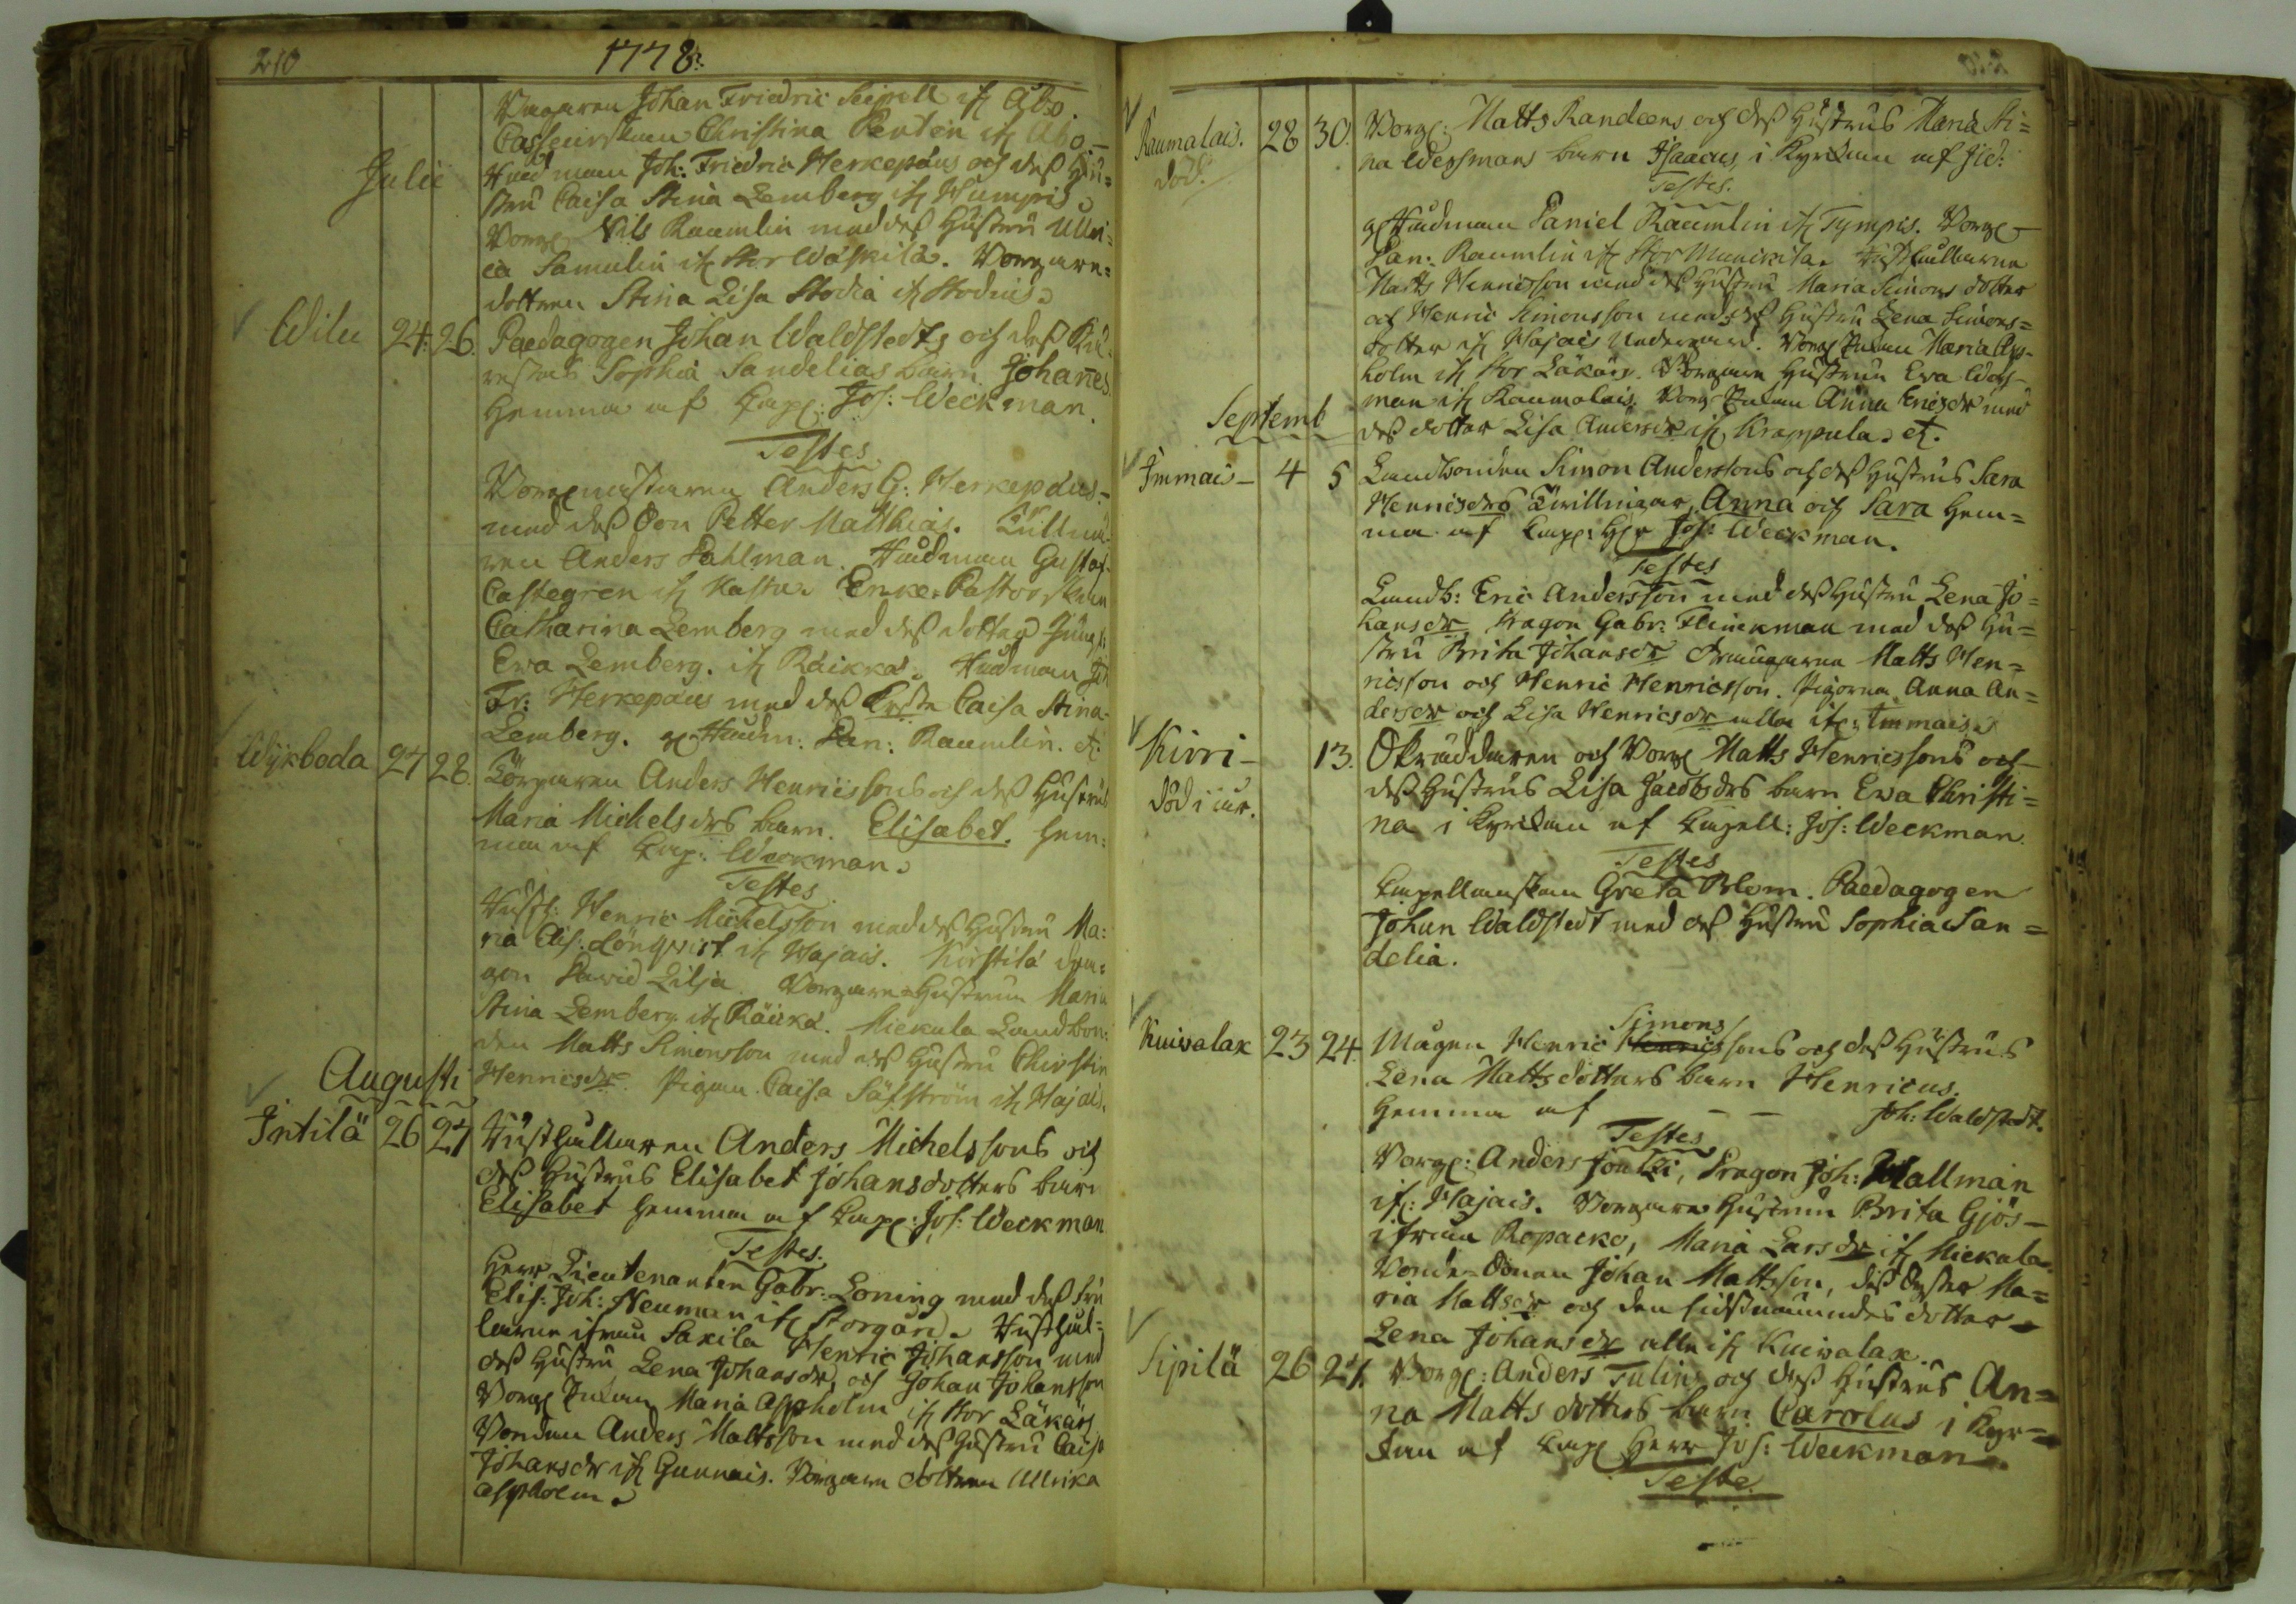 210
1778.
Johan Friedric Seipell ifr Åbo.
Christina Pentin ifr Åbo. –
Julii
Joh: Friedric Herkepæus och dess Hu=
stru Caisa Stina Lemberg ifr Wumpis.
Borg. Nils Raumlin med dess Hustru Ullri=
ca Samulin ifr Stor Wäskilä. Borgare=
dottren Stina Lisa Stodia ifr Stodius.
Wilu 24. 26. Paedagogen Johan Waldstedts och dess Kä=
restas Sophia Sandelias barn Johañes
Hemma af Cap: Jos: Weckman.
Testes.
Borgmästaren Anders G: Herkepæus –
med dess Son Petter Matthias.
Anders Dahlman. Gustaf
Castegren ifr Enke-Pastorskan
Catharina Lemberg med dess dotter Jungf:
Ewa Lemberg. ifr Räikkä. Joh
Fr: Herkepæus med dess Caisa Stina
Lemberg. Dan: Raumlin. etc
Wijkboda 27 28. Anders Henricssons och dess Hustrus
Maria Michelsdrs barn. Elisabet. Hem=
ma af Cap: Weckman.
Testes
Henric Michelsson med dess Hustru Ma=
ria Elis. Lönqvist ifr Hajais. Kirstilä dra=
gon David Lilja. Borgare Hustrun Maria
Stina Lemberg ifr Räickä. Mickula Landbon=
den Matts Simonsson med dess Hustru Chirstin
Henricsdr. Pigan Caisa Säfström ifr Hajais.
Augusti
Intilä 26 27 Rusthållaren Anders Michelssons och
dess Hustrus Elisabet Johansdotters barn
Elisabet hemma af Cap: Jos: Weckman
Testes.
Herr Lieutenanten Gabr: Loning med dess Fru
Elis: Joh: Neuman ifr Storgård. Rusthål=
larne ifrån Saxila Henric Johansson med
dess Hustru Lena Johansdr, och Johan Johansson
Borg Enkan Maria Aspholm ifr Stor Läkärs
Bonden Anders Mattsson med dess Hustru Caisa
Johansdr ifr Gunnais. Borgare dottren Ullrika
Aspholm.
Raumalais. 28 30. Borg: Matts Randeens och dess Hustrus Maria Sti=
död. na Wessmans barn Isaacus, i Kyrkan af
Testes.
Daniel Raumlin ifr Tympis. Borg –
Dan: Raumlin ifr Stor Munikila. Rusthållarne
Matts Henricsson med dess Hustru Maria Simons dotter
och Henric Simonsson med dess Hustru Lena Simons=
dotter ifr Hajais Nedergård. Borg Enkan Maria Asp=
holm ifr Stor Läkärs. Borgare Hustrun Ewa Wess=
man ifr Raumalais. Borg Enkan Anna Ericsdr med
dess dotter Lisa Andersdr ifr Krappula. etc.
Septemb
Immais – 4 5 Landbonden Simon Anderssons och dess Hustrus Sara
Henricsdrs Twillingar, Anna och Sara Hem=
ma af Cap: Hr Jos: Weckman.
Testes
Landb: Eric Andersson med dess Hustru Lena Jo=
hansdr Dragon Gabr: Flinckman med dess Hu=
stru Brita Johansdr Drängarne Matts Hen=
ricsson och Henric Henricsson. Pigorna Anna An=
dersdr och Lisa Henricsdr alla ifr: Immais.
Kirri – 13. Skräddaren och Borg Matts Henricssons och
död i år. dess Hustrus Lisa Jacobsdrs barn Ewa Christi=
na i Kyrkan af Capell: Jos: Weckman.
Testes
Capellanskan Greta Blom. Paedagogen
Johan Waldstedt med dess Hustru Sophia San=
delia.
Simons
Kuivalax 23 24. Mågen Henric Henricssons och dess Hustrus
Lena Matts dotters barn Henricus.
Hemma af – – Joh: Waldstedt.
Testes
Borg: Anders Joutzi, Dragon Joh: Wallman
ifr: Hajais. Borgare Hustrun Brita Gjös –
ifrån Ropacko, Maria Larsdr ifr Mickula.
Bonde-Sonen Johan Mattsson, dess Syster Ma=
ria Mattsdr och den sidstnämndes dotter
Lena Johansdr alla ifr Kuivalax.
Sipilä 26 27. Borg: Anders Tulins och dess Hustrus An=
na Matts dotters barn Carolus i Kyr=
kan af Cap Herr Jos: Weckman.
Teste.